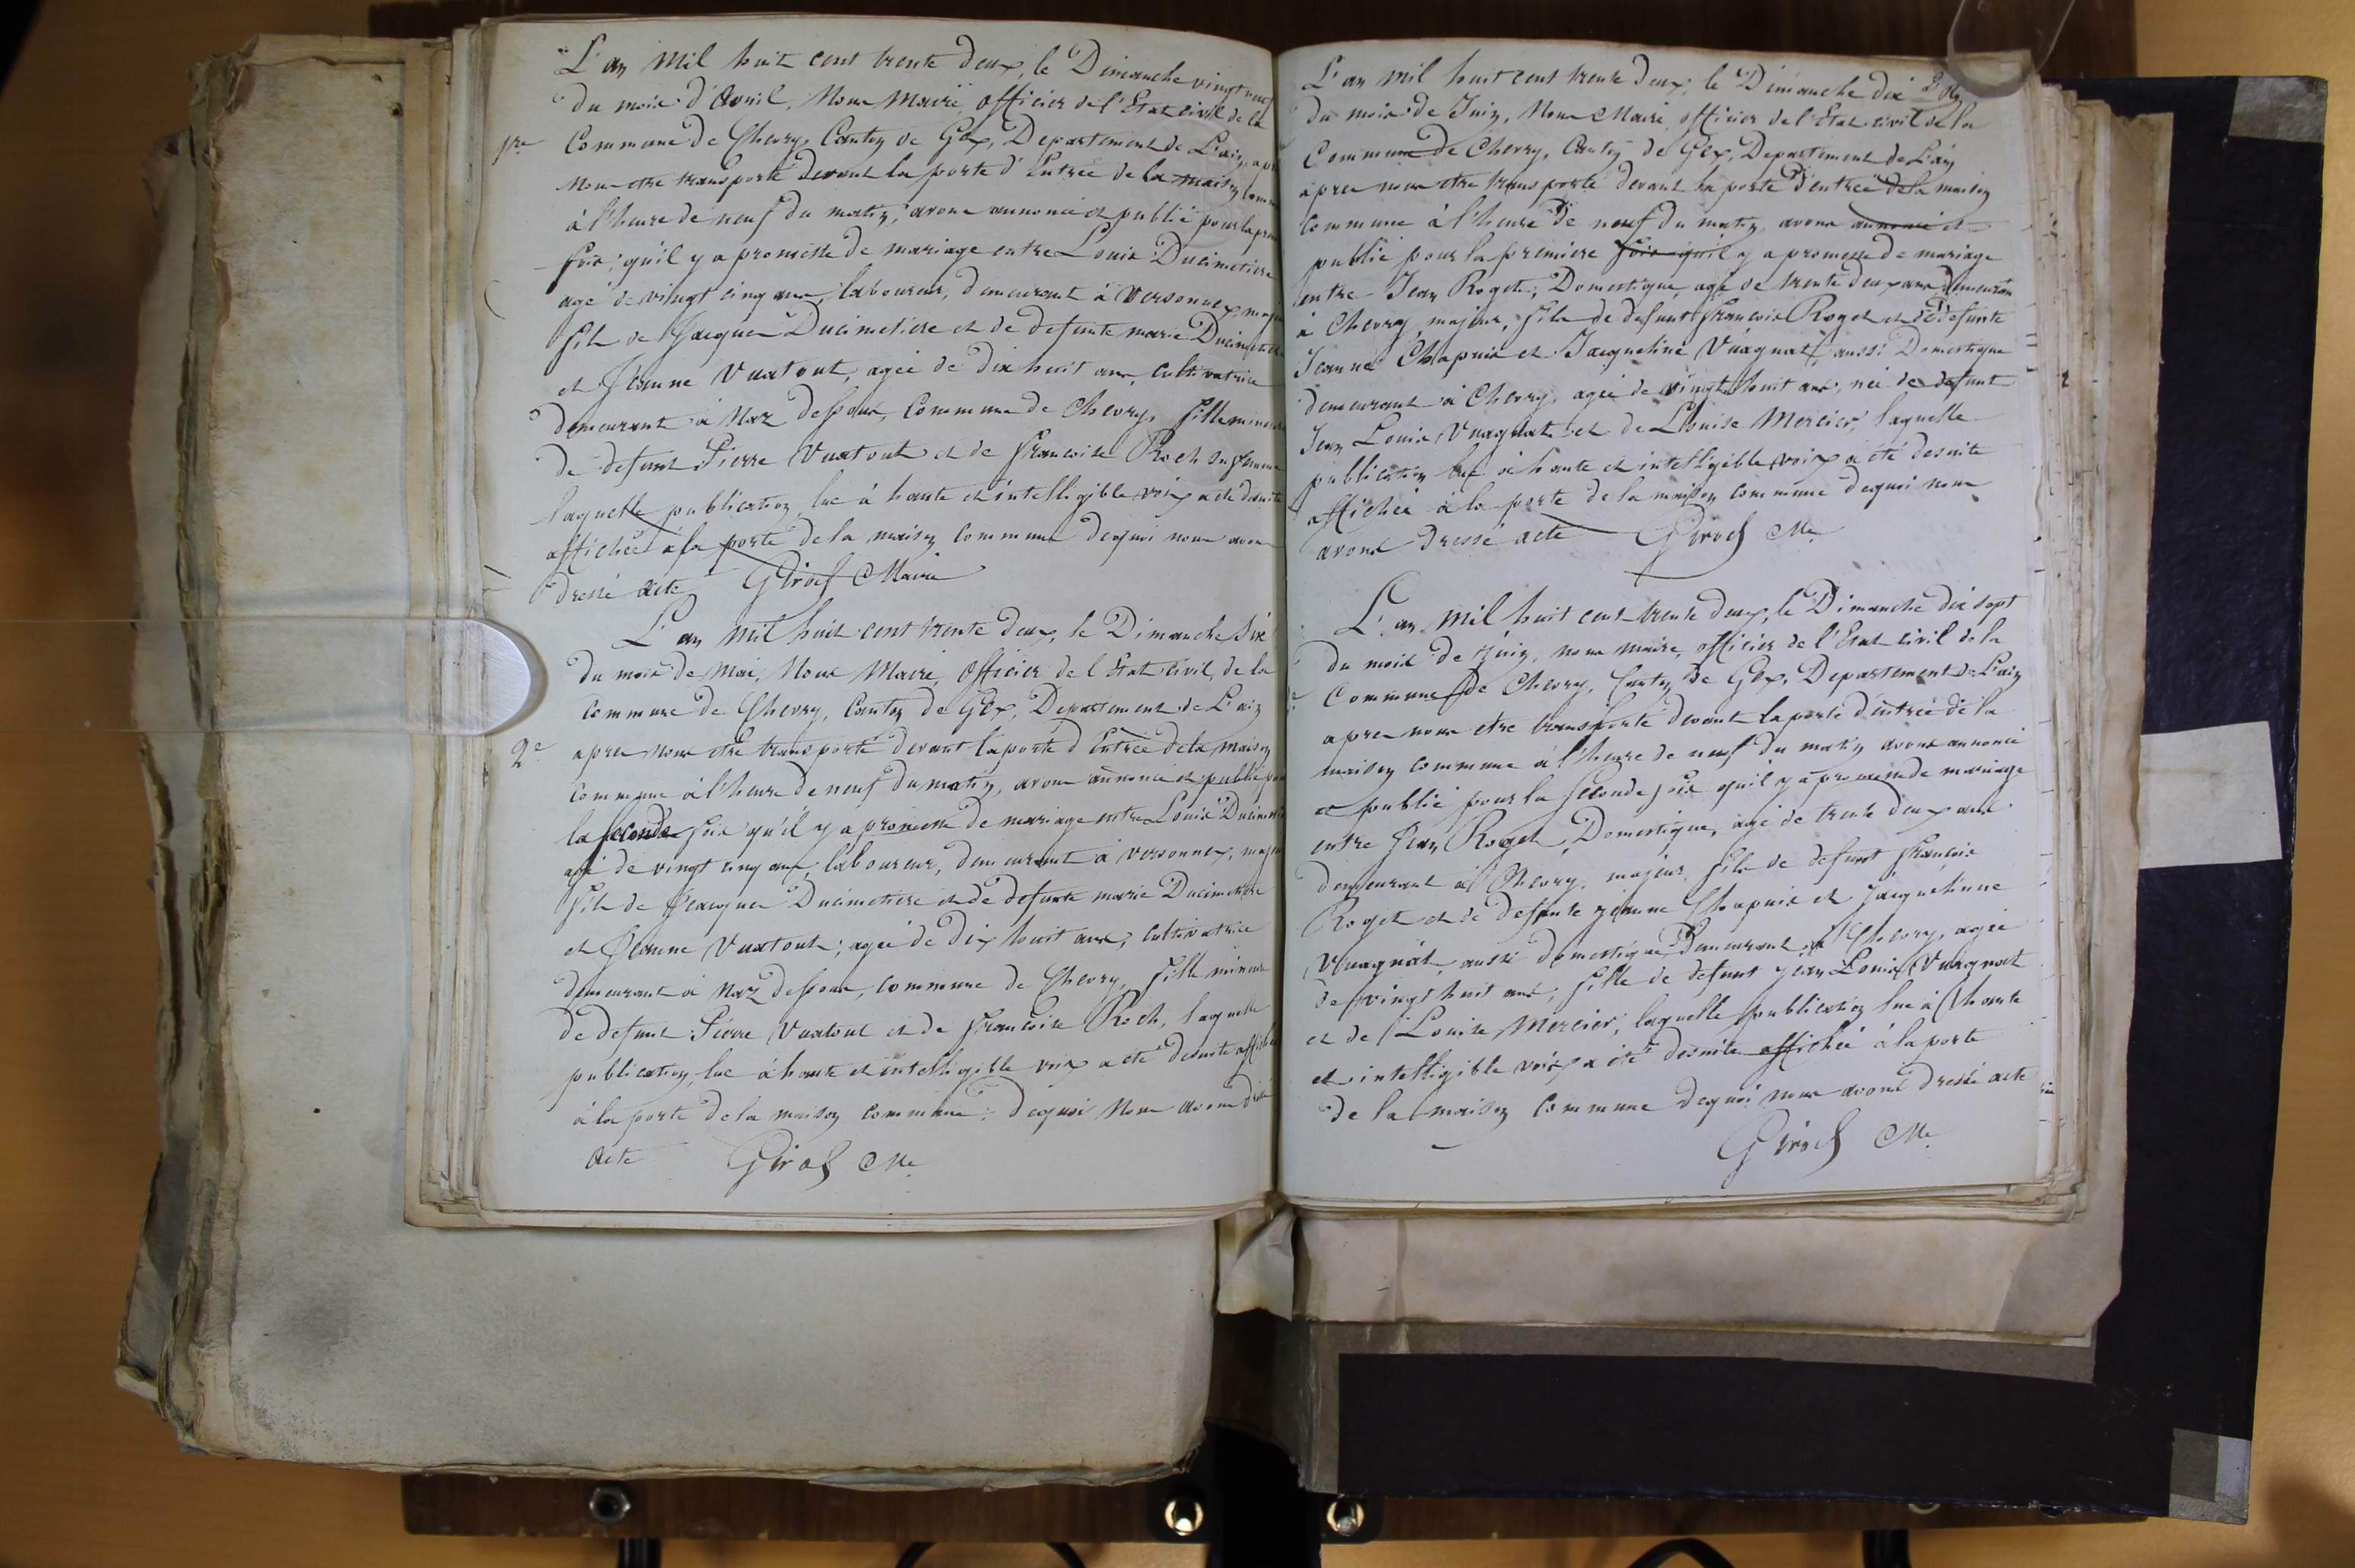 L'an mil huit cent trente deux, le Dimanche vingt neuf
du mois d'Avril, Nous Maire officier de l'Etat civil de la
1re
Commune de Chevry, Canton de Gex, Departement de L'ain, apres
nous etre transporté devant la porte d'Entrée de la maison
à l'heure de neuf du matin, avons annoncé et publié pour la
fois, qu'il y a promesse de mariage entre Louis Ducimetiere
agé de vingt cinq ans, laboureur, demeurant à Versonnex
fils de Jacques Ducimetiere et de defunte marie Ducimetiere
et Jeanne Vuatout, agée de dix huit ans, cultivatrice
demeurant à Naz dessous, Commune de Chevry, fille mineure
de defunt Pierre Vuatout et de francoise Roch sa femme
laquelle publication lue à haute et intelligible voix a été desuite
affichée à la porte de la maison commune dequoi nous avons
dressé acte Girod Maire
L'an mil huit cent trente deux, le Dimanche Six
du mois de Mai, Nous Maire, Officier de l'Etat civil, de la
commune de Chevry, Canton de Gex, Departement de L'ain
2e
apres nous etre transporté devant la porte d'Entrée de la maison
commune à l'heure de neuf du matin, avons annoncé et publié pour
la seconde fois qu'il y a promesse de mariage entre Louis Ducimetiere
agé de vingt cinq ans, laboureur, demeurant à Versonnex, majeur
fils de Jacques Ducimetiere et de defunte marie Ducimetiere
et Jeanne Vuatout, agée de dix huit ans, cultivatrice
demeurant à Naz dessous, commune de Chevry, fille mineure
de defunt Pierre Vuatout et de francoise Roch, laquelle
publication lue à haute et intelligible voix a été desuite affichée
à la porte de la maison commune, dequoi Nous avons dressé
Acte Girod Me
L'an mil huit cent trente deux, le Dimanche dix
du mois de Juin, Nous Maire officier de l'Etat civil de la
Commune de Chevry, Canton de Gex, Departement de L'ain
apres nous etre transporté devant la porte d'entrée de la maison
commune à l'heure de neuf du matin, avons annoncé et
publié pour la premiere fois qu'il y a promesse de mariage
entre Jean Roget, Domestique, agé de trente deux ans demeurant
à Chevry, majeur, fils de defunt francois Roget et de defunte
Jeanne Chapuis et Jacqueline Vuagnat, aussi Domestique
demeurant à Chevry, agée de vingt huit ans, née de defunt
Jean Louis Vuagnat et de Louise Mercier, laquelle
publication lue à haute et intelligible voix a été desuite
affichée à la porte de la maison commune dequoi nous
avons dressé acte Girod Me
L'an mil huit cent trente deux, le Dimanche dix sept
du mois de Juin, nous maire, officier de l'Etat civil de la
Commune de Chevry, Canton de Gex, Departement de L'ain
apres nous etre transporté devant la porte d'entrée de la
maison commune à l'heure de neuf du matin avons annoncé
et publié pour la seconde fois qu'il y a promesse de mariage
entre Jean Roget, Domestique, agé de trente deux ans
demeurant à Chevry, majeur, fils de defunt francois
Roget et de defunte jeanne Chapuis et Jacquelinne
Vuagnat, aussi domestique demeurant à Chevry, agée
de vingt huit ans, fille de defunt jean Louis Vuagnat
et de Louise Mercier, laquelle publication lue à haute
et intelligible voix a été desuite affichée à la porte
de la maison commune dequoi nous avons dressé acte
Girod Me